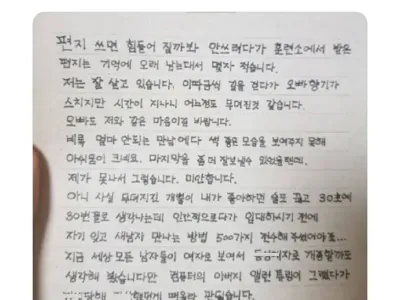 편지 쓰면 힘들어 질까봐 안쓰려다가 훈련소에서 받은
편지는 기억에 오래 남는대서 몇자 적습니다.
저는 잘 살고 있습니다. 이따금씩 길을 걷다가 오빠향기가
스치지만 시간이 지나니 어느정도 무뎌진것 같습니다.
오빠도 저와 같은 마음이길 바랍니다.
비록 얼마 안되는 만남에 다 썩 좋은 모습을 보여주지 못해
아쉬움이 크네요. 마지막을 좀 더 잘보낼수 있었을텐데.
제가 못나서 그렇습니다. 미안합니다.
아니 사실 무뎌지긴 개뿔이 내가 좋아하던 술도 끊고 30초에
80번 꼴로 생각나는데 인간적으로다가 입대하시기 전에
자기 잊고 새남자 만나는 방법 500가지 전수해 주셨어야죠...
지금 세상 모든 남자들이 여자로 보여서 동성애자로 개종할까도
생각해 봤습니다만 컴퓨터의 아버지 앨런 튜링이 그랬다가